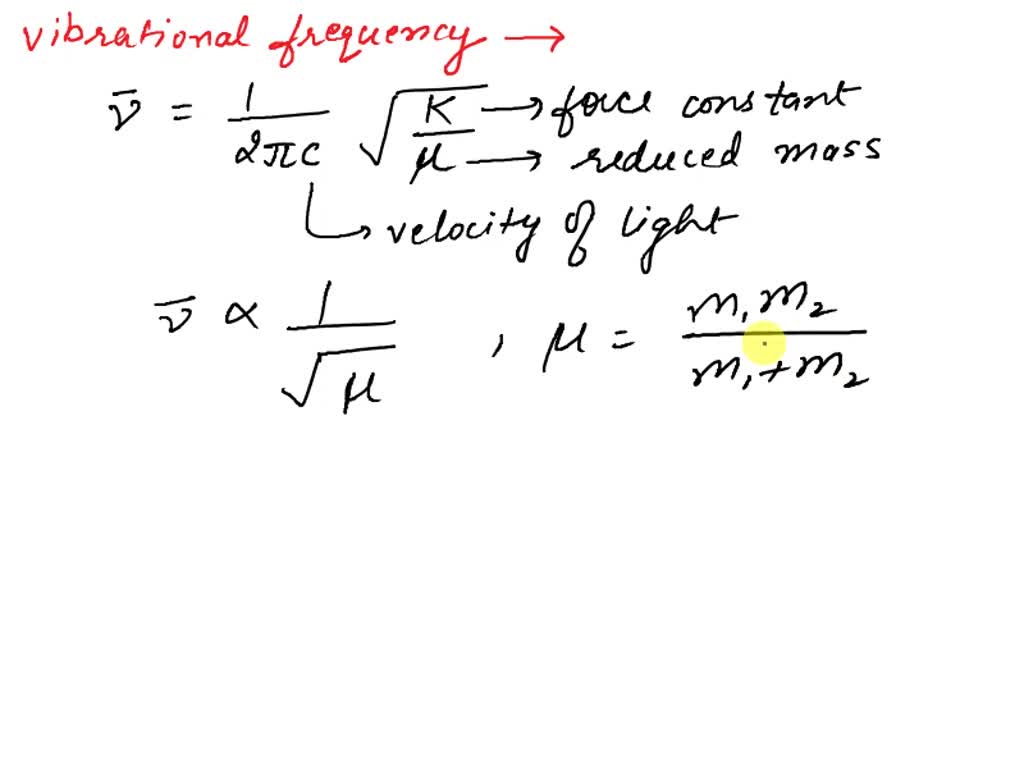 vibrational frequency →
ν̄ = 1/2πc √K/μ → force constant
→ reduced mass
↳ velocity of light
ν̄ ∝ 1/√μ , μ = m₁m₂/m₁+m₂